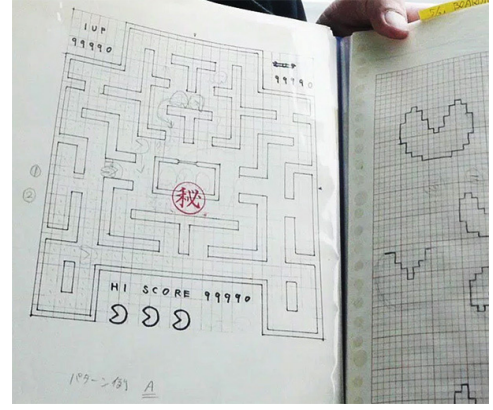 1UP
99990
99990
①
②
秘
HI SCORE 99990
パターン例 A